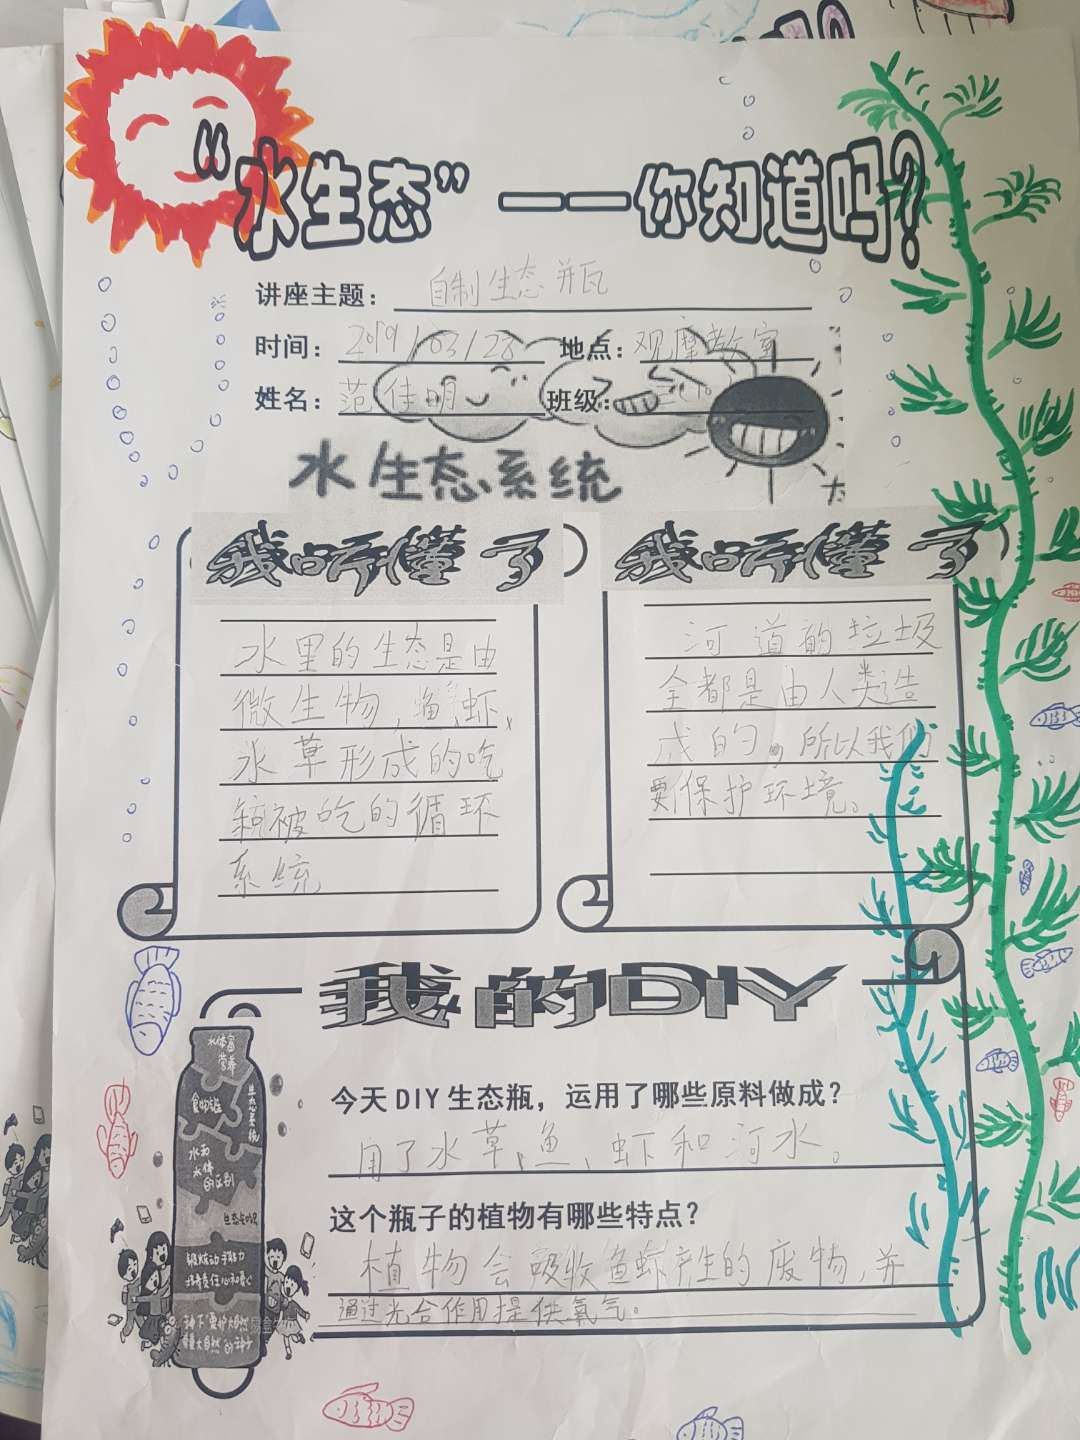 “水生态”——你知道吗？
讲座主题：自制生态瓶
时间：2019/03/28 地点：观摩教室
姓名：范佳明 班级：
水生态系统
我听懂了
水里的生态是由
微生物，鱼、虾、
水草形成的吃
被吃的循环
系统
我听懂了
河道的垃圾
全都是由人类造
成的，所以我们
要保护环境。
我的DIY
水体富
营养
食物链
生态系统
水和
水体
的区别
今天DIY生态瓶，运用了哪些原料做成？
用了水草、鱼、虾和河水。
这个瓶子的植物有哪些特点？
植物会吸收鱼虾产生的废物，并
通过光合作用提供氧气。